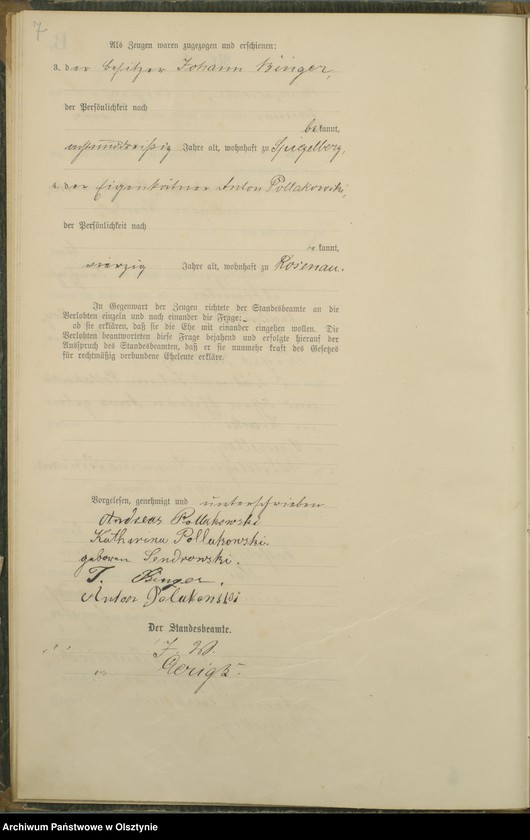 7
Als Zeugen waren zugezogen und erschienen:
3. der Besitzer Johann Binger,
der Persönlichkeit nach
bekannt,
Jahre alt, wohnhaft zu Spigelberg,
4. der Eigenkätner Anton Pollakowski,
der Persönlichkeit nach
be kannt,
vierzig Jahre alt, wohnhaft zu Rosenau.
In Gegenwart der Zeugen richtete der Standesbeamte an die
Verlobten einzeln und nach einander die Frage:
ob sie erklären, daß sie die Ehe mit einander eingehen wollen. Die
Verlobten beantworteten diese Frage bejahend und erfolgte hierauf der
Ausspruch des Standesbeamten, daß er sie nunmehr kraft des Gesetzes
für rechtmäßig verbundene Eheleute erkläre.
Vorgelesen, genehmigt und unterschrieben
Andreas Pollakowski
Katharina Pollakowski.
geboren Sendrowski.
J. Binger.
Anton Polakowski
Der Standesbeamte.
J. V.
Gerigk
Archiwum Państwowe w Olsztynie